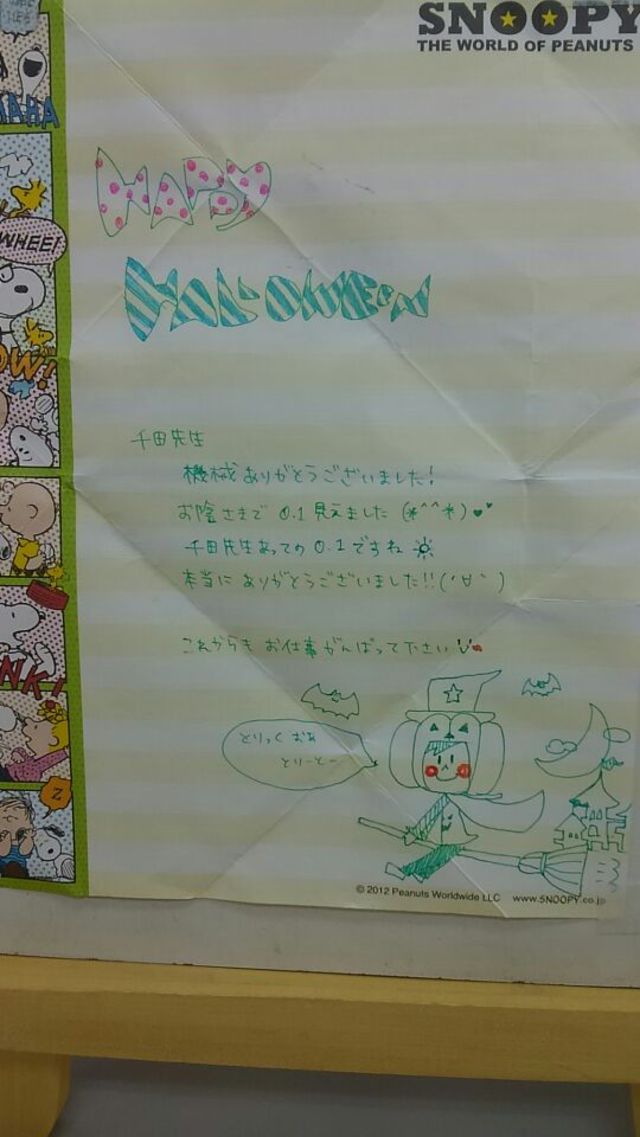 SNOOPY
THE WORLD OF PEANUTS
HAHA
WHEE!
OW!
NK!
Z
HAPPY
HALLOWEEN
千田先生
機械ありがとうございました!
お陰さまで 0.1見えました (*^^*)♥♥
千田先生あっての0.1ですね☀
本当にありがとうございました!!('∀`)
これからもお仕事がんばって下さい
とりっく おあ
とりーとー
© 2012 Peanuts Worldwide LLC www.SNOOPY.co.jp